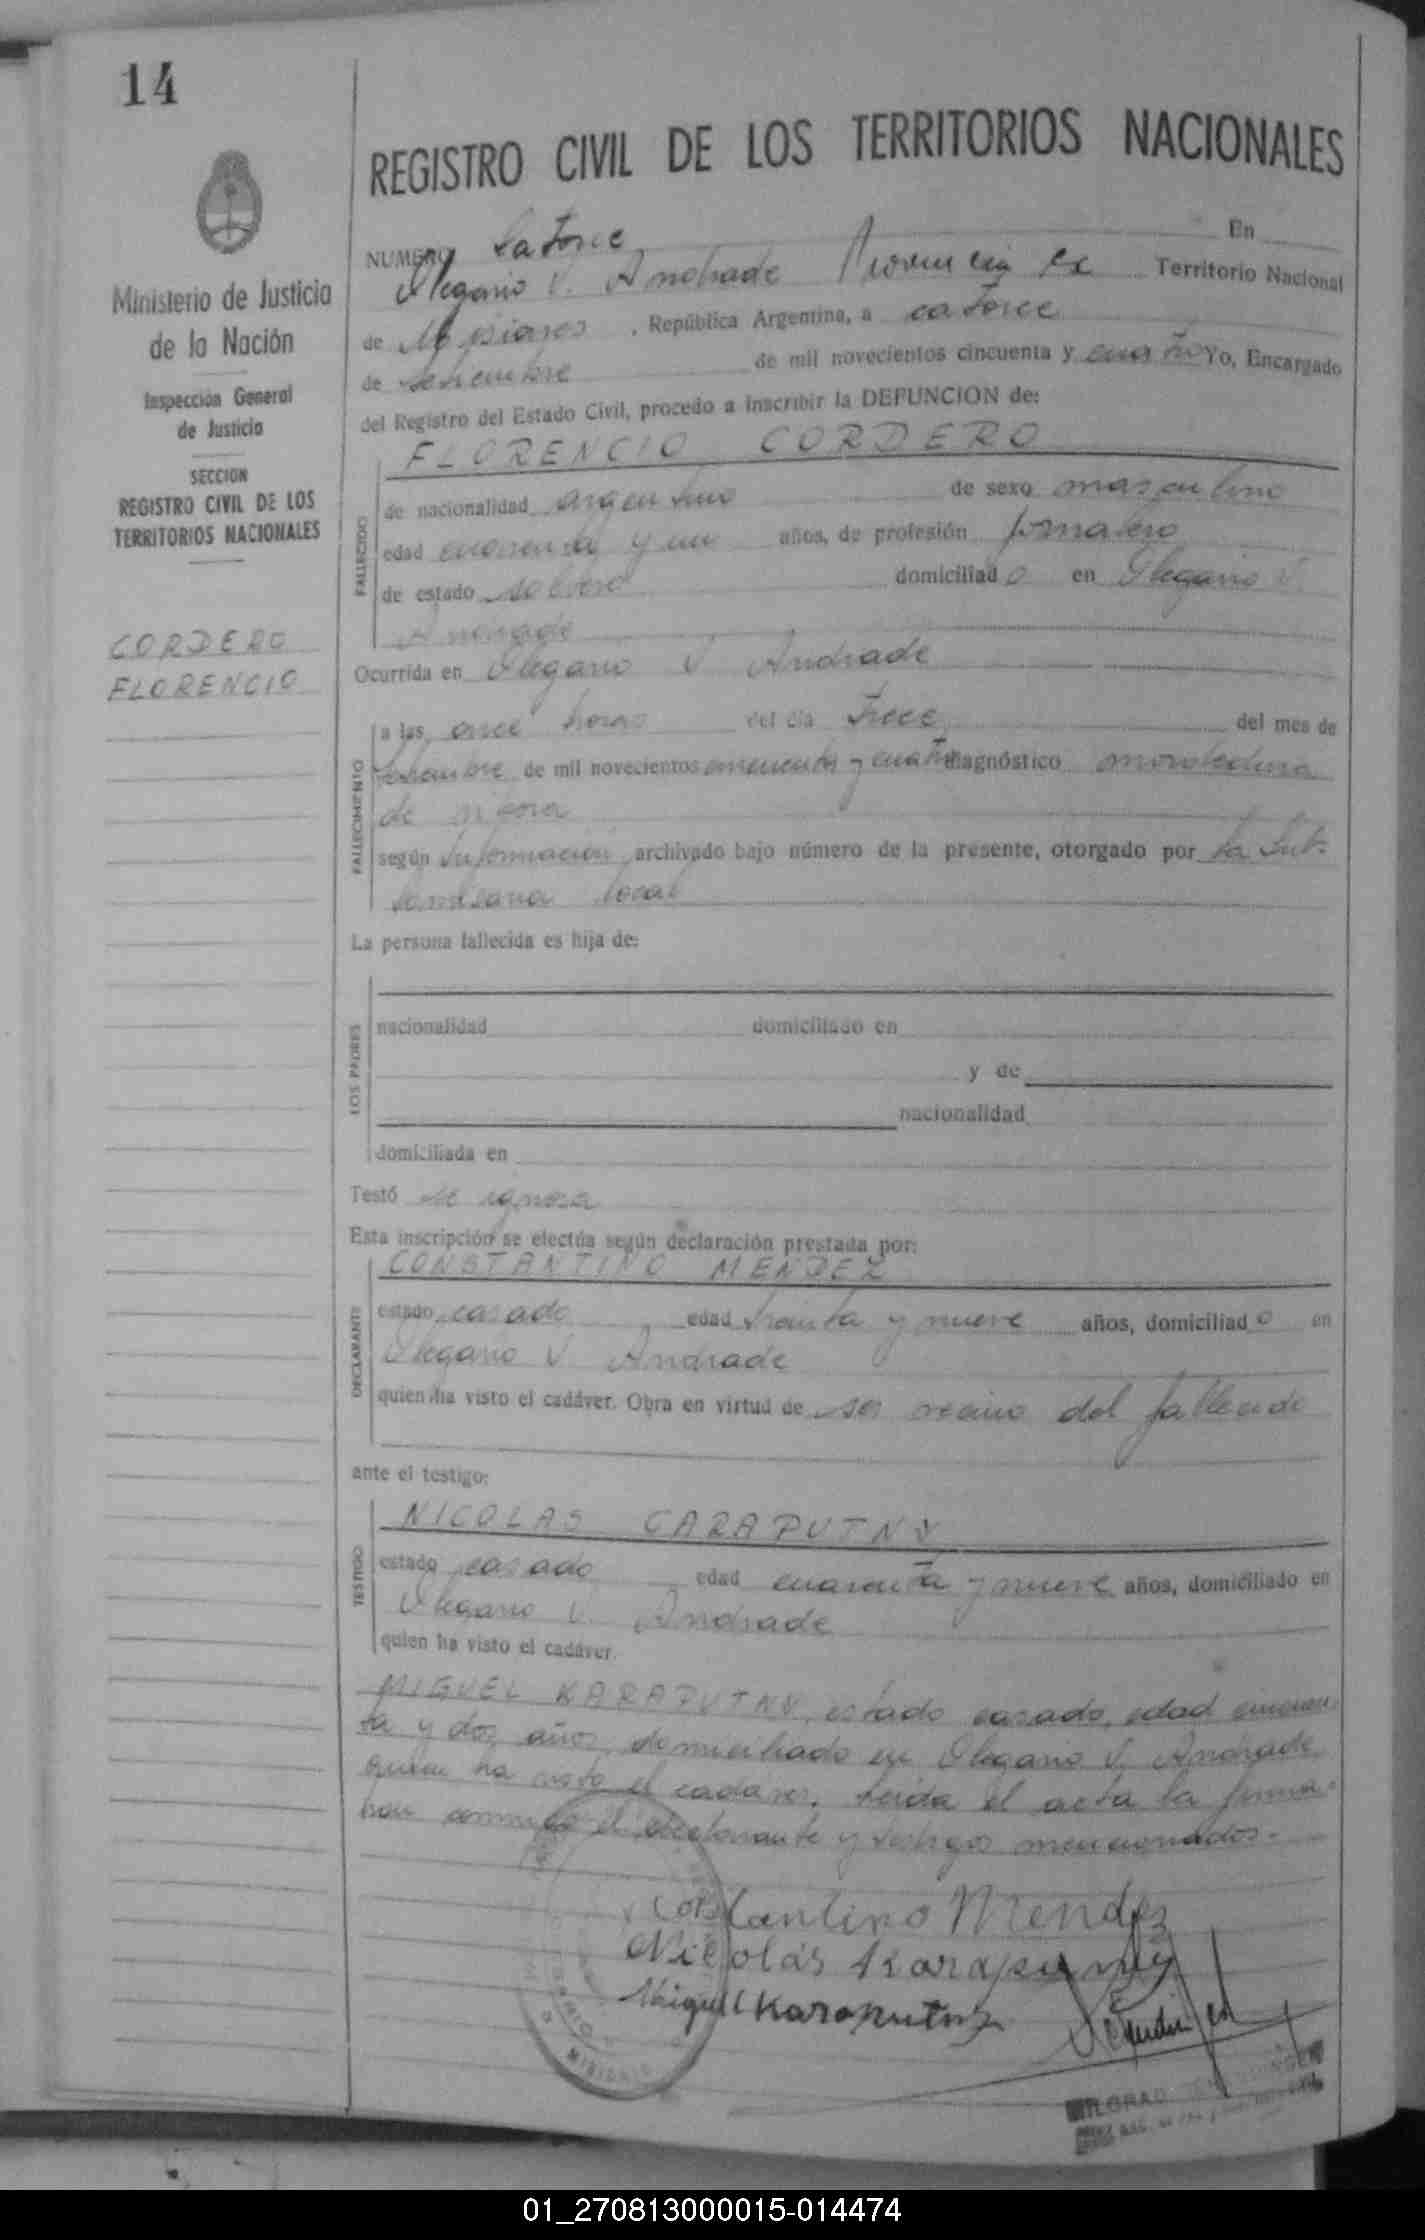 14
REGISTRO CIVIL DE LOS TERRITORIOS NACIONALES
Ministerio de Justicia
de la Nación
Inspección General
de Justicia
SECCION
REGISTRO CIVIL DE LOS
TERRITORIOS NACIONALES
CORDERO
FLORENCIO
NUMERO Catorce En
Olegario V. Andrade Provincia ex Territorio Nacional
de Misiones, República Argentina, a catorce
de setiembre de mil novecientos cincuenta y cuatro Yo, Encargado
del Registro del Estado Civil, procedo a inscribir la DEFUNCION de:
FLORENCIO CORDERO
FALLECIDO
de nacionalidad argentino de sexo masculino
edad cuarenta y un años, de profesión jornalero
de estado soltero domiciliado en Olegario V.
Andrade
Ocurrida en Olegario V Andrade
FALLECIMIENTO
a las once horas del día trece del mes de
setiembre de mil novecientos cincuenta y cuatro diagnóstico mordedura
de víbora
según Información archivado bajo número de la presente, otorgado por la Sub-
comisaria local
La persona fallecida es hija de:
LOS PADRES
nacionalidad domiciliado en
y de
nacionalidad
domiciliada en
Testó se ignora
Esta inscripción se efectúa según declaración prestada por:
CONSTANTINO MENDEZ
DECLARANTE
estado casado edad treinta y nueve años, domiciliado en
Olegario V Andrade
quien ha visto el cadáver. Obra en virtud de ser vecino del fallecido
ante el testigo:
NICOLAS CARAPUTNY
TESTIGO
estado casado edad cuarenta y nueve años, domiciliado en
Olegario V. Andrade
quien ha visto el cadáver.
MIGUEL KARAPUTNY, estado casado, edad cincuen-
ta y dos años domiciliado en Olegario V. Andrade
quien ha visto el cadaver. Leída el acta la firma-
ron conmigo el declarante y testigos mencionados.-
Constantino Mendez
Nicolás Karaputny
Miguel Karaputny
MISIONES
01_270813000015-014474